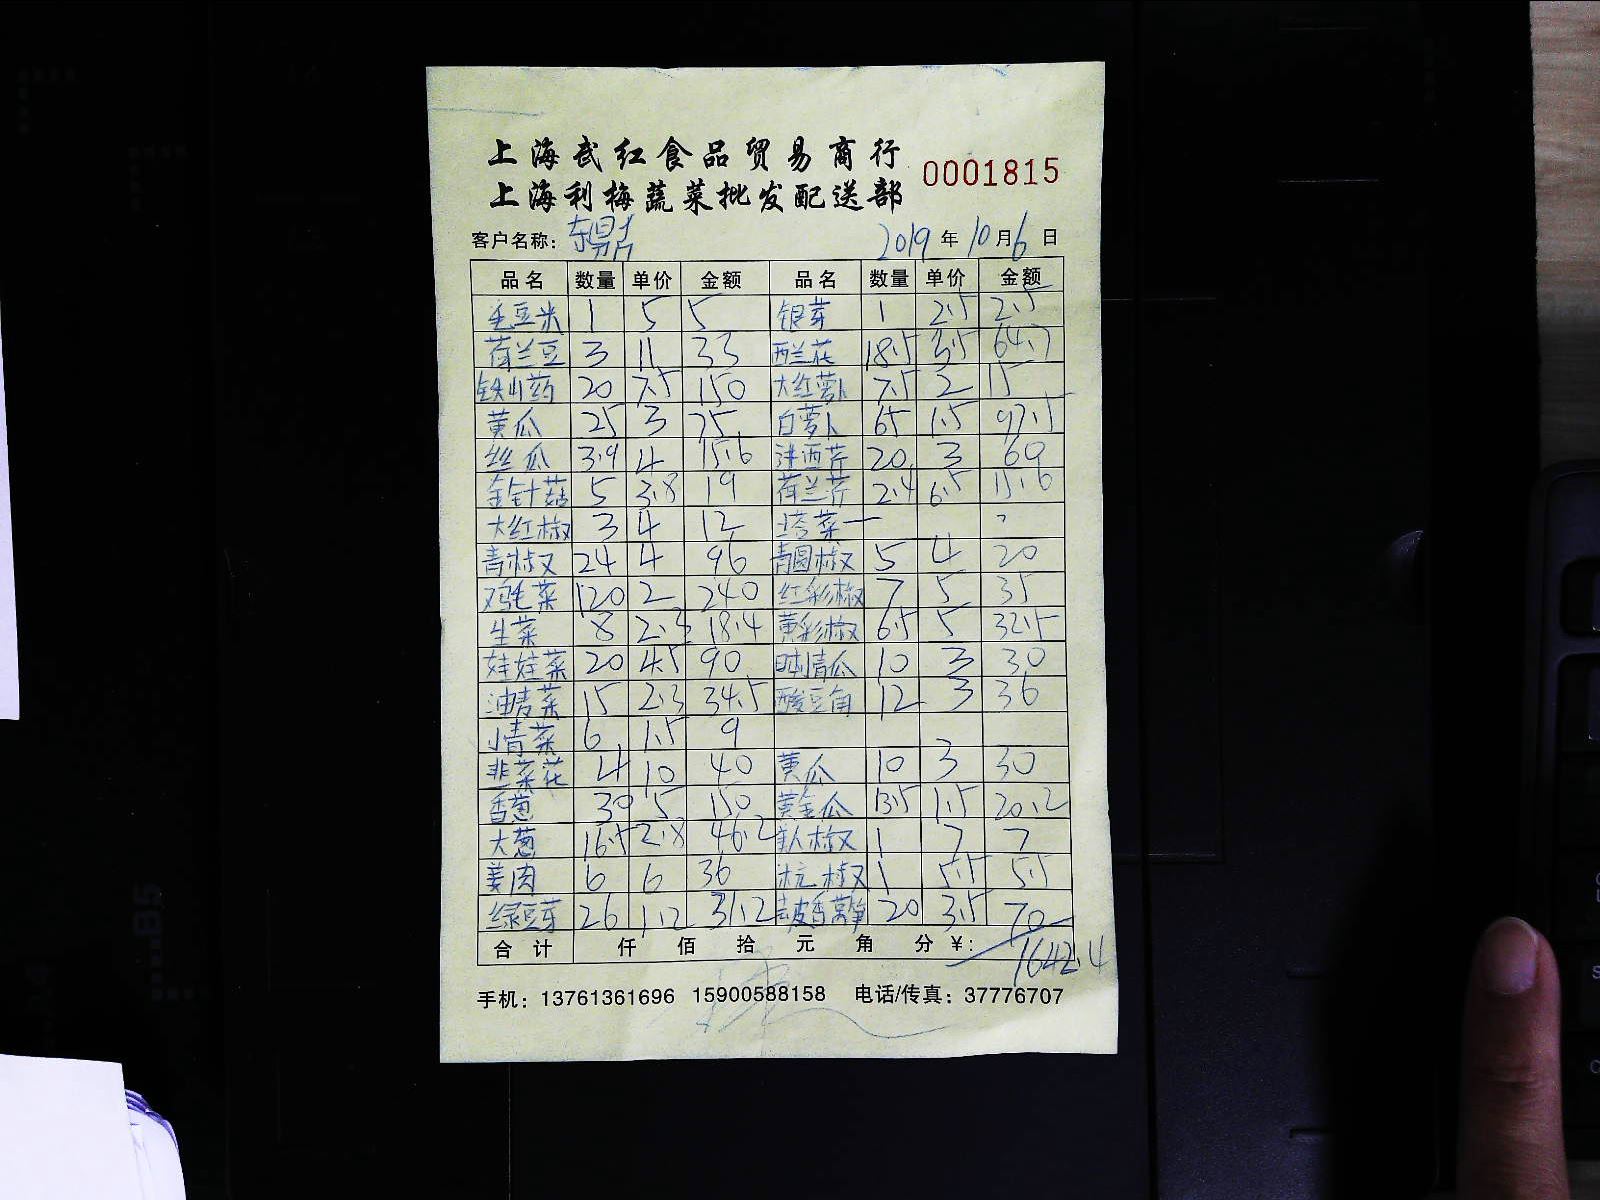 上海武红食品贸易商行
上海利梅蔬菜批发配送部
0001815
客户名称：东鼎 2019年10月6日
品名 数量 单价 金额 品名 数量 单价 金额
毛豆米 1 5 5 银芽 1 2.5 2.5
荷兰豆 3 11 33 西兰花 18.5 3.5 64.7
铁山药 20 7.5 150 大红萝卜 7.5 2 15
黄瓜 25 3 75 白萝卜 65 1.5 97.5
丝瓜 3.9 4 15.6 洋西芹 20 3 60
金针菇 5 3.8 19 荷兰芹 2.4 6.5 15.6
大红椒 3 4 12 塔菜一
青椒 24 4 96 青圆椒 5 4 20
鸡毛菜 120 2 240 红彩椒 7 5 35
生菜 8 2.3 18.4 黄彩椒 6.5 5 32.5
娃娃菜 20 4.5 90 瓜 10 3 30
油麦菜 15 2.3 34.5 酸豆角 12 3 36
小青菜 6 1.5 9
韭菜花 4 10 40 黄瓜 10 3 30
香葱 30 5 150 黄金瓜 13.5 1.5 20.2
大葱 16.5 2.8 46.2 美人椒 1 7 7
姜肉 6 6 36 杭椒 1 5.5 5.5
绿豆芽 26 1.12 31.12 去皮香莴笋 20 3.5 70
合计 仟 佰 拾 元 角 分 ¥： 1642.4
手机：13761361696 15900588158 电话/传真：37776707